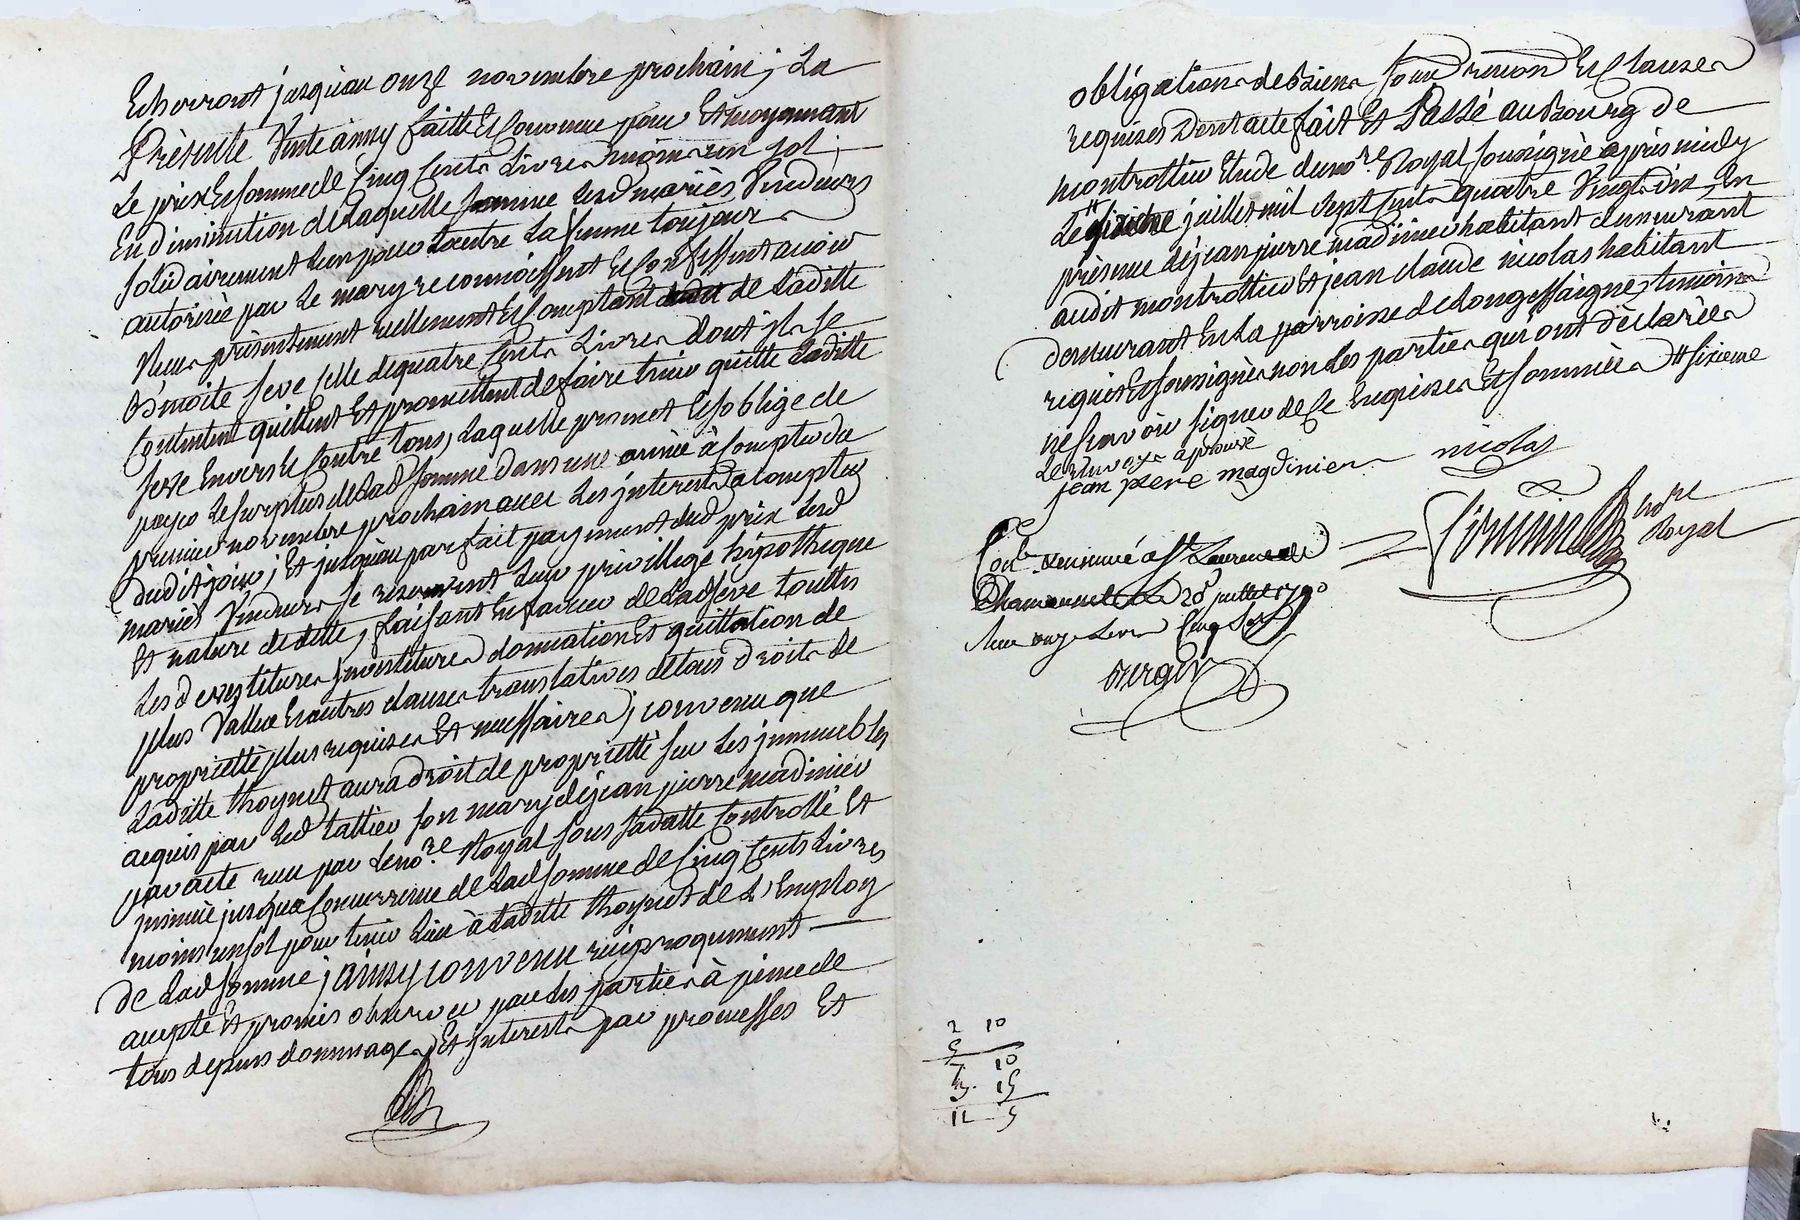 Echerront jusquau onze novembre prochain ; La
Présente Vente ainsy faitte Et Convenue pour Et moyennant
Le prix Et somme de Cinq Cents Livres moins un sol ;
En diminution de Laquelle somme Lesd mariés Vendeurs
solidairement lun pour Lautre La femme toujours
autorisée par Le mary reconnoissent Et Confessent avoir
reçu présentement reellement Et Comptant de Laditte
Benoite seve Celle de quatre Cents Livres dont ils se
Contentent quittent Et promettent de faire tenir quitte Laditte
seve Envers Et Contre tous, Laquelle promet Et soblige de
payer Le surplus de Lad somme dans une année à Compter du
premier novembre prochain avec Les jnterests a Compter
dudit jour ; Et jusquau parfait payement dud prix Lesd
mariés Vendeurs se reservent Leur privillege hipotheque
Et nature de dette, faisant En faveur de Lad seve touttes
Les devestitures jnvestitures donnation Et quittation de
plus Vallue Et autres clauses translatives de tous droits de
proprietté plus requises Et necessaires ; convenu que
Laditte thoynet aura droit de proprietté sur Les jmmeubles
acquis par Led tattieu son mary de jean pierre madinier
par acte reçu par Le no.re Royal sous sa datte Controllé Et
jnsinué jusqua Concurrence de Lad somme de Cinq Cents Livres
moins un sol pour tenir Lieu à Laditte thoynet de L'Employ
de Lad somme ; ainsy convenu reciproquement
accepté Et promis observer par Les parties à peine de
tous depens dommages Et jnterests par promesses Et
obligations de Biens sous renon Et Clauses
requises Dont acte fait Et Passé au Bourg de
montrottier Etude du no.re Royal soussigné après midy
Le # juillet mil sept Cent quatre Vingt dix En
présence de jean pierre madinier habitant demeurant
audit montrottier Et jean claude nicolas habitant
demeurant En La parroisse de Longessaigne, temoins
requis Et soussignés non Les parties qui ont déclarées
ne sçavoir signer de Ce Enquises Et sommées # sixieme
Le renvoy aprouvé
jean piere magdinier nicolas
no.re
Royal
Con.lé
28 juillet 1790
Reçu onze Livres Cinq Sols
2 10
5
7 10
3. 15
11 5